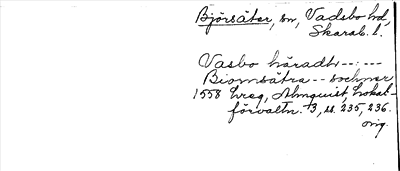 Björsäter, sn, Vadsbo hd,
Skarab. l.
Vasbo häradh --:---
Biornsätra -- sochner
1558 Lreg, Almquist, Lokal-
förvaltn. 3, s. 235, 236.
orig.